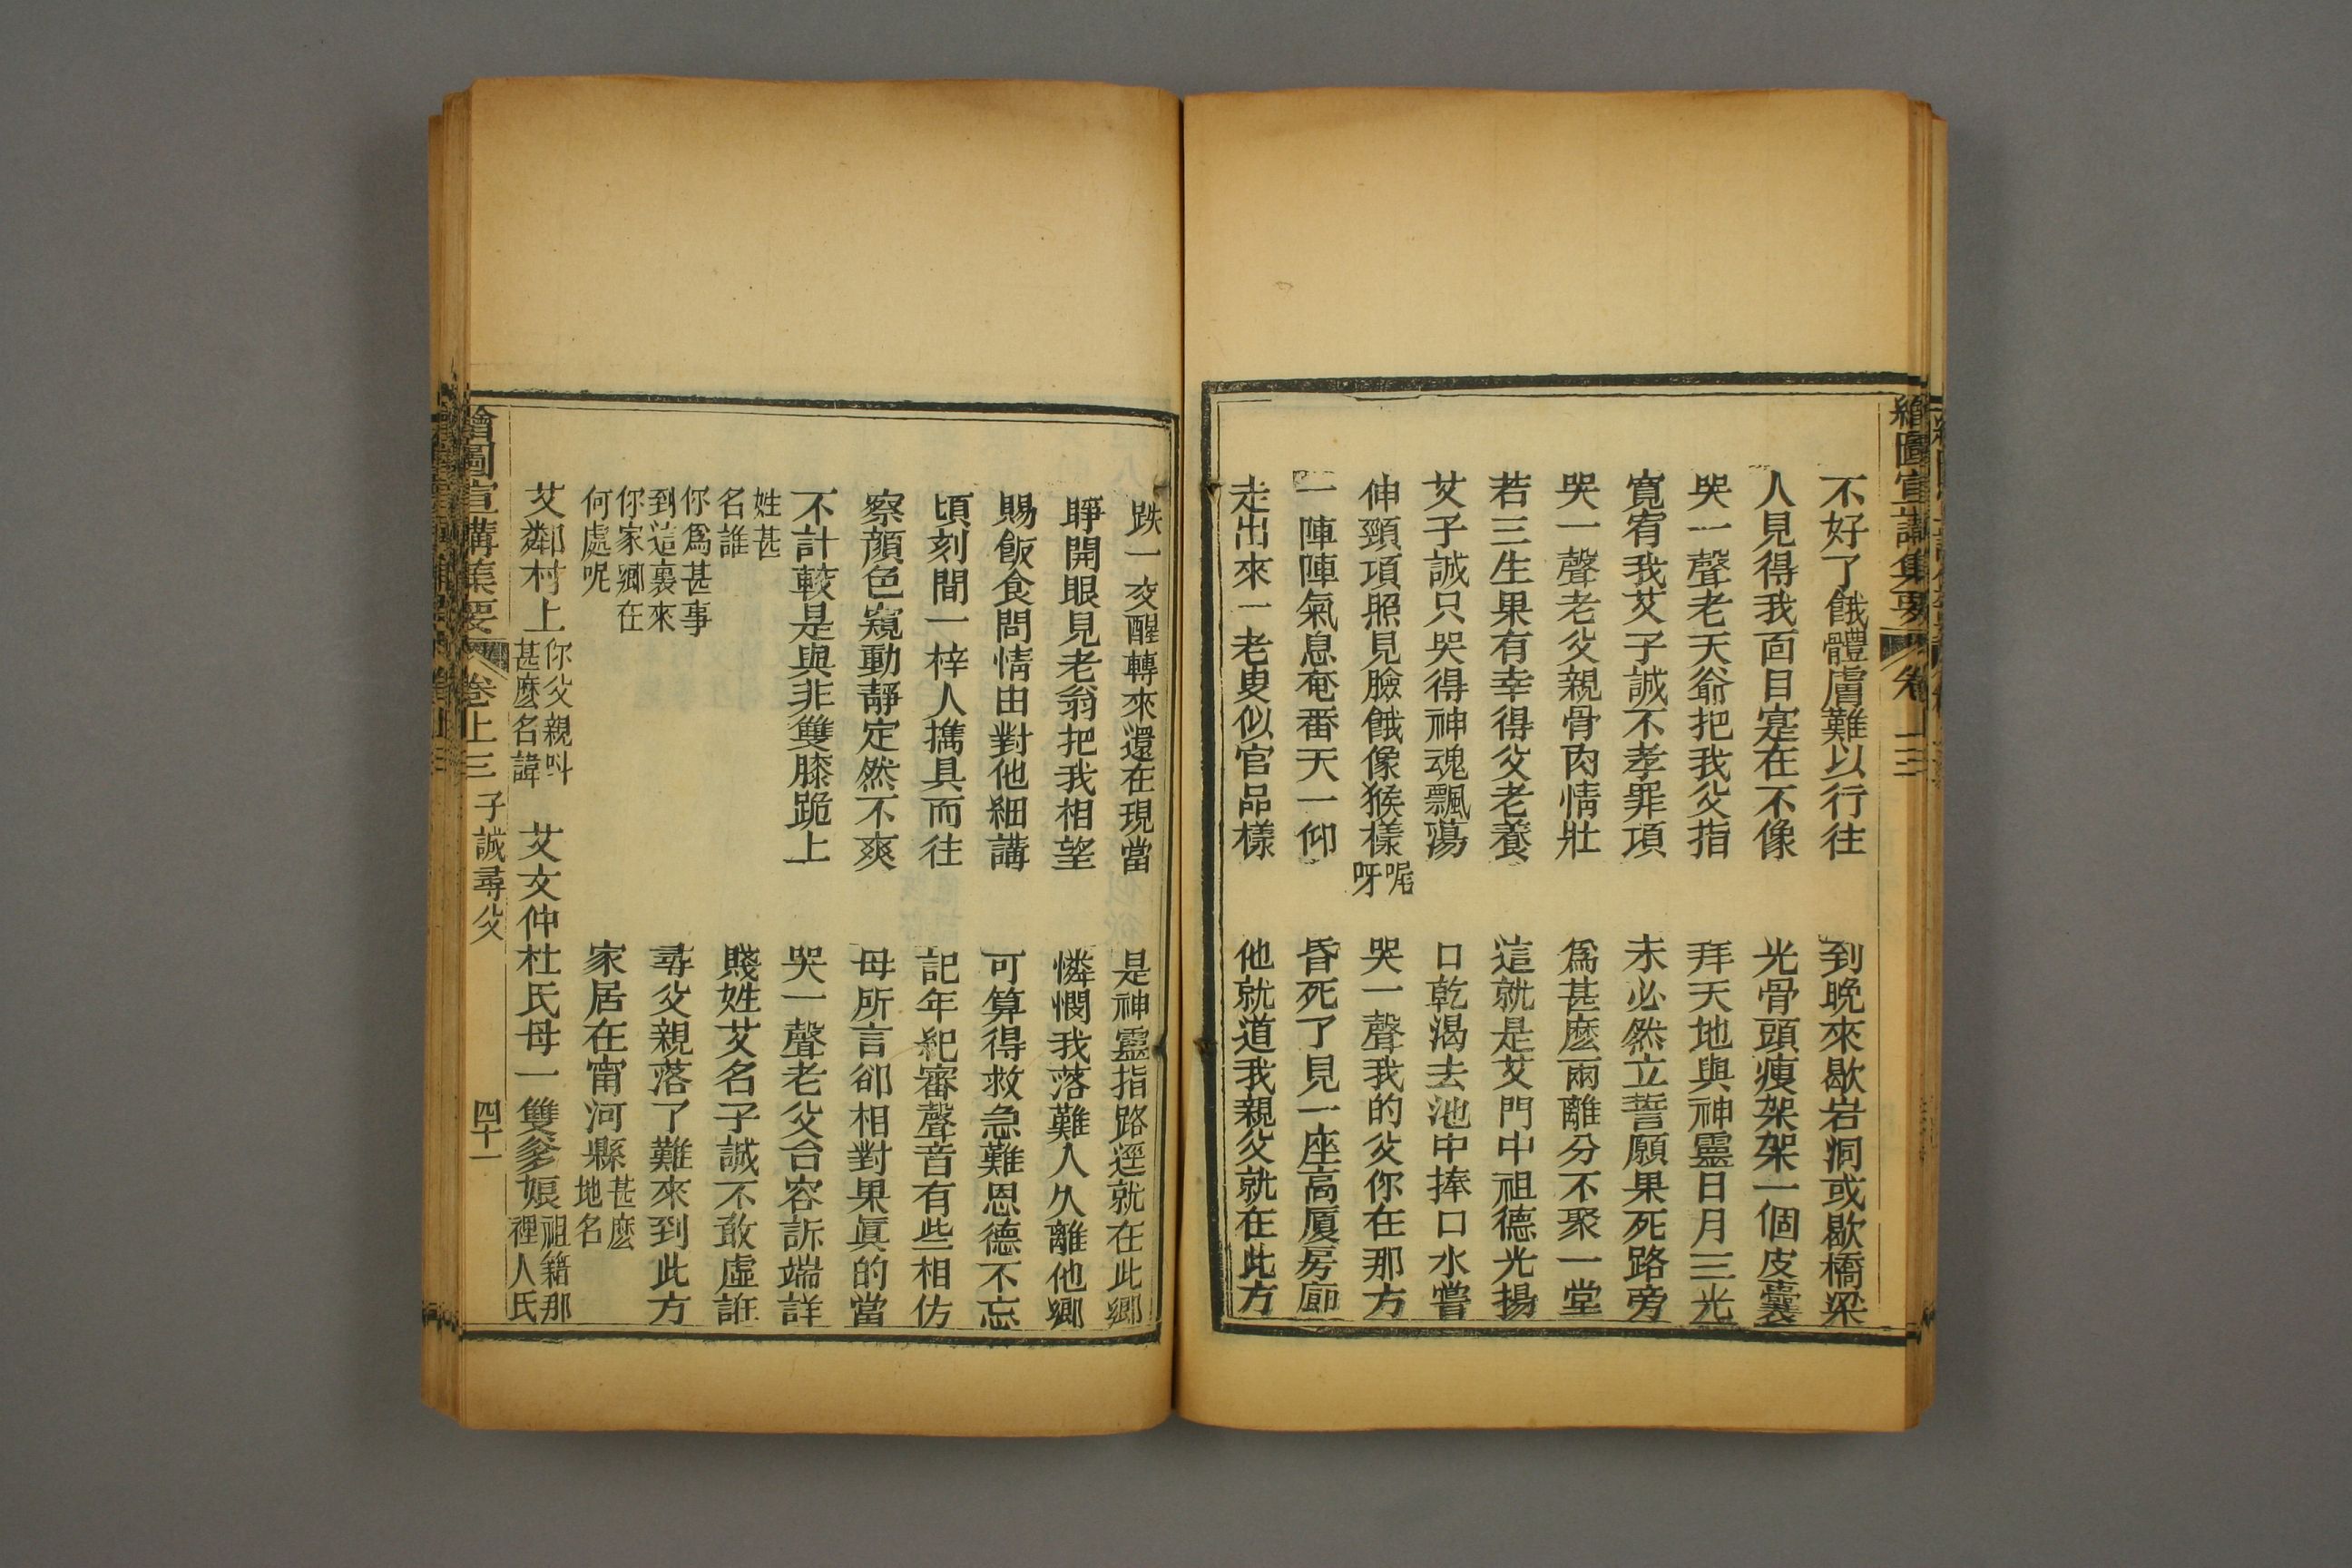 繪圖宣講集要 卷上三
不好了餓體膚難以行往 到晚來歇岩洞或歇橋梁
人見得我面目寔在不像 光骨頭瘦架架一個皮囊
哭一聲老天爺把我父指 拜天地與神靈日月三光
寬宥我艾子誠不孝罪項 未必然立誓願果死路旁
哭一聲老父親骨肉情壯 爲甚麽兩離分不聚一堂
若三生果有幸得父老養 這就是艾門中祖德光揚
艾子誠只哭得神魂飄蕩 口乾渴去池中捧口水嘗
伸頸項照見臉餓像猴樣呢呀 哭一聲我的父你在那方
一陣陣氣息奄番天一仰 昏死了見一座高厦房廊
走出來一老叟似官品樣 他就道我親父就在此方
跌一交醒轉來還在現當 是神靈指路逕就在此鄉
睜開眼見老翁把我相望 憐憫我落難人久離他鄉
賜飯食問情由對他細講 可算得救急難恩德不忘
頃刻間一梓人擕具而往 記年紀審聲音有些相仿
察顏色窺動靜定然不爽 母所言卻相對果眞的當
不計較是與非雙膝跪上 哭一聲老父台容訴端詳
姓甚名誰 賤姓艾名子誠不敢虛誑
你爲甚事到這裏來 尋父親落了難來到此方
你家鄉在何處呢 家居在甯河縣甚麽地名
艾鄰村上你父親呌甚麽名諱 艾文仲杜氏母一雙爹娘祖籍那裡人氏
繪圖宣講集要 卷上三 子誠尋父 四十一